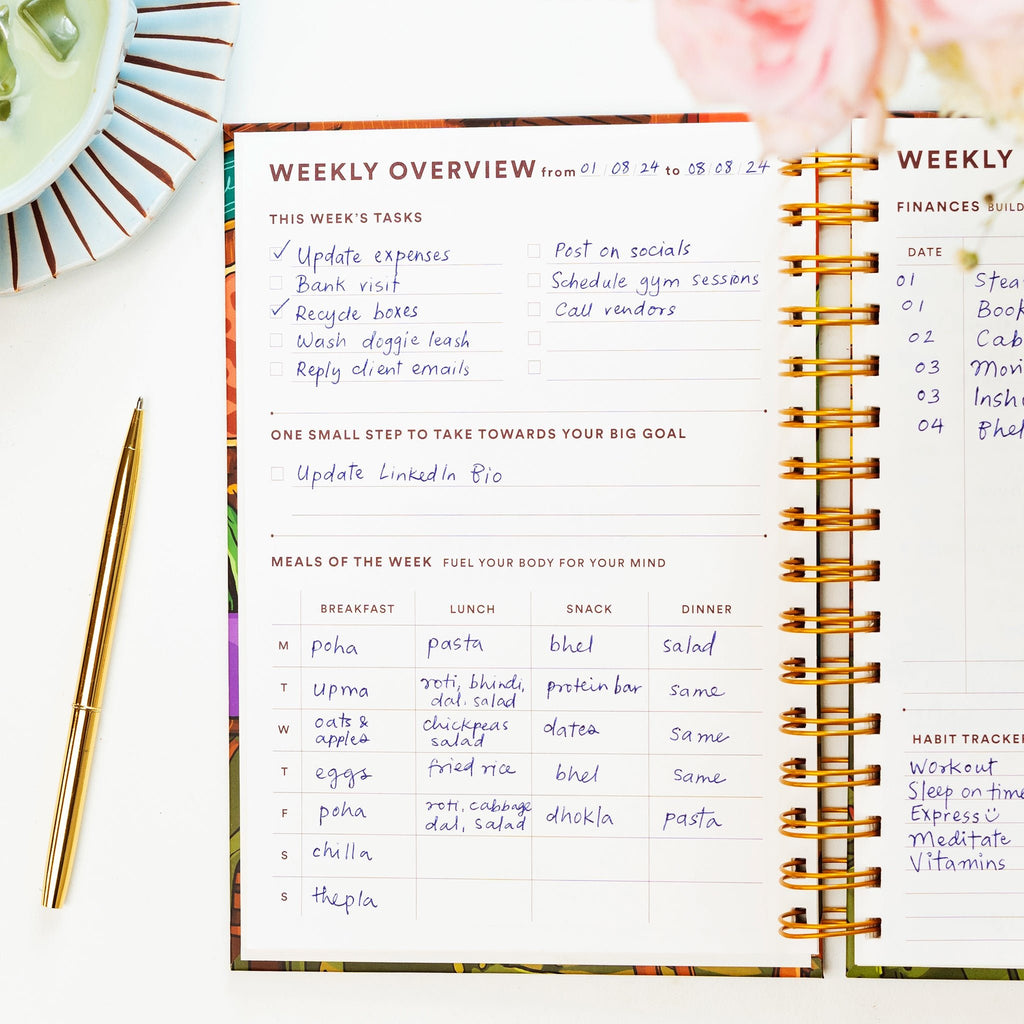 WEEKLY OVERVIEW from 01/08/24 to 08/08/24
THIS WEEK'S TASKS
✓ Update expenses
Bank visit
✓ Recycle boxes
Wash doggie leash
Reply client emails
Post on socials
Schedule gym sessions
Call vendors
ONE SMALL STEP TO TAKE TOWARDS YOUR BIG GOAL
Update LinkedIn Bio
MEALS OF THE WEEK FUEL YOUR BODY FOR YOUR MIND
BREAKFAST LUNCH SNACK DINNER
M poha pasta bhel salad
T upma roti, bhindi, dal, salad protein bar same
W oats & apples chickpeas salad dates same
T eggs fried rice bhel same
F poha roti, cabbage dal, salad dhokla pasta
S chilla
S thepla
WEEKLY
FINANCES BUILD
DATE
01
01 Book
02 Cab
03
03
04
HABIT TRACKER
Workout
Sleep on time
Express
Meditate
Vitamins